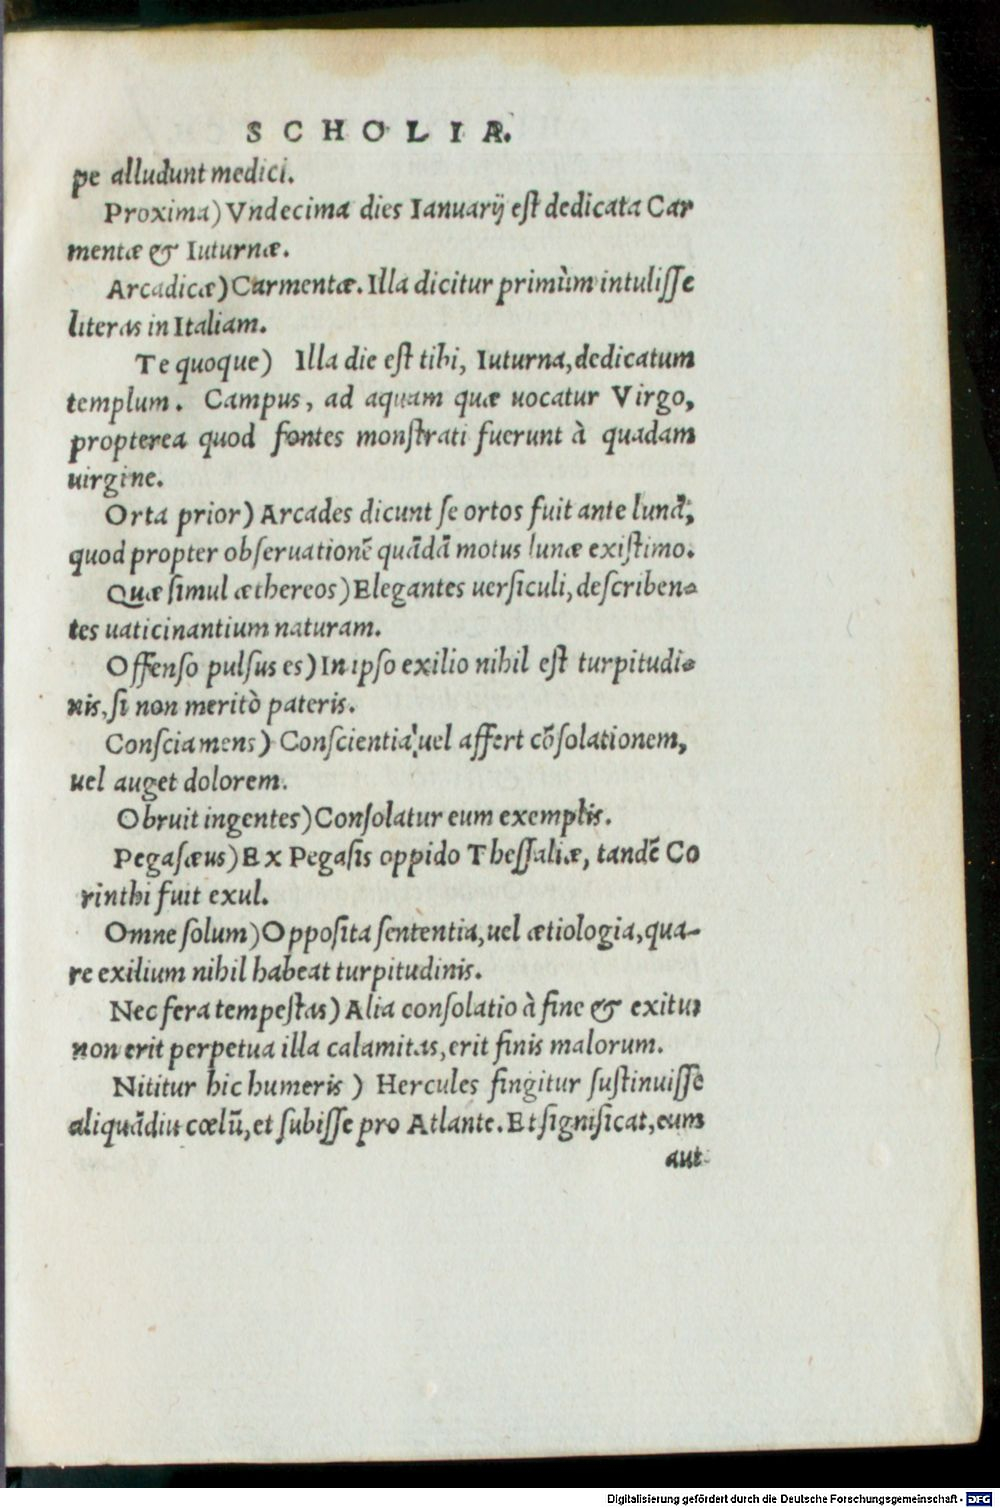 SCHOLIÆ.
pe alludunt medici.
Proxima) Vndecima dies Ianuarij est dedicata Car
mentæ & Iuturnæ.
Arcadicæ) Carmentæ. Illa dicitur primùm intulisse
literas in Italiam.
Te quoque) Illa die est tibi, Iuturna, dedicatum
templum. Campus, ad aquam quæ uocatur Virgo,
propterea quod fontes monstrati fuerunt à quadam
uirgine.
Orta prior) Arcades dicunt se ortos fuit ante lunā,
quod propter obseruationē quādā motus lunæ existimo.
Quæ simul æthereos) Elegantes uersiculi, describen-
tes uaticinantium naturam.
Offenso pulsus es) In ipso exilio nihil est turpitudi-
nis, si non meritò pateris.
Conscia mens) Conscientia, uel affert cōsolationem,
uel auget dolorem.
Obruit ingentes) Consolatur eum exemplis.
Pegasæus) Ex Pegasis oppido Thessaliæ, tandē Co
rinthi fuit exul.
Omne solum) Opposita sententia, uel ætiologia, qua-
re exilium nihil habeat turpitudinis.
Nec fera tempestas) Alia consolatio à fine & exitu:
non erit perpetua illa calamitas, erit finis malorum.
Nititur hic humeris) Hercules fingitur sustinuisse
aliquādiu cœlū, et subisse pro Atlante. Et significat, eum
aut
Digitalisierung gefördert durch die Deutsche Forschungsgemeinschaft - DFG